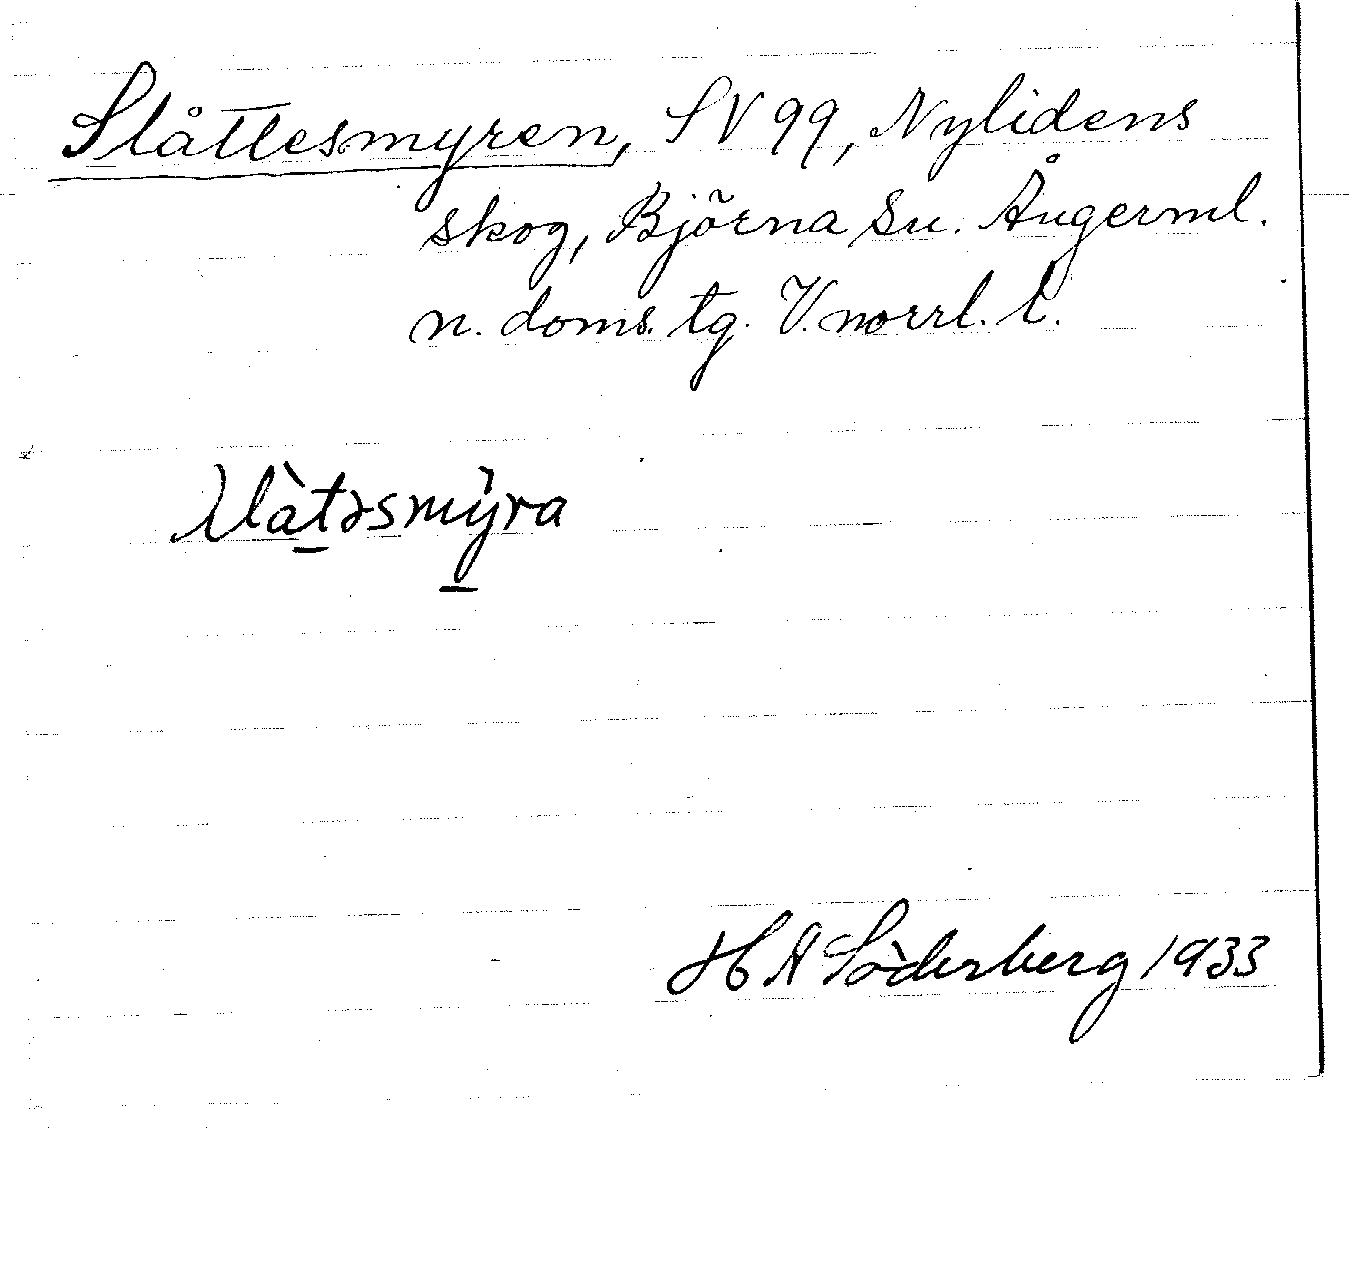 Slåttesmyren, SV 99, Nylidens
skog, Björna sn. Ångerml.
n. doms. tg. V. norrl. l.
H A Söderberg 1933